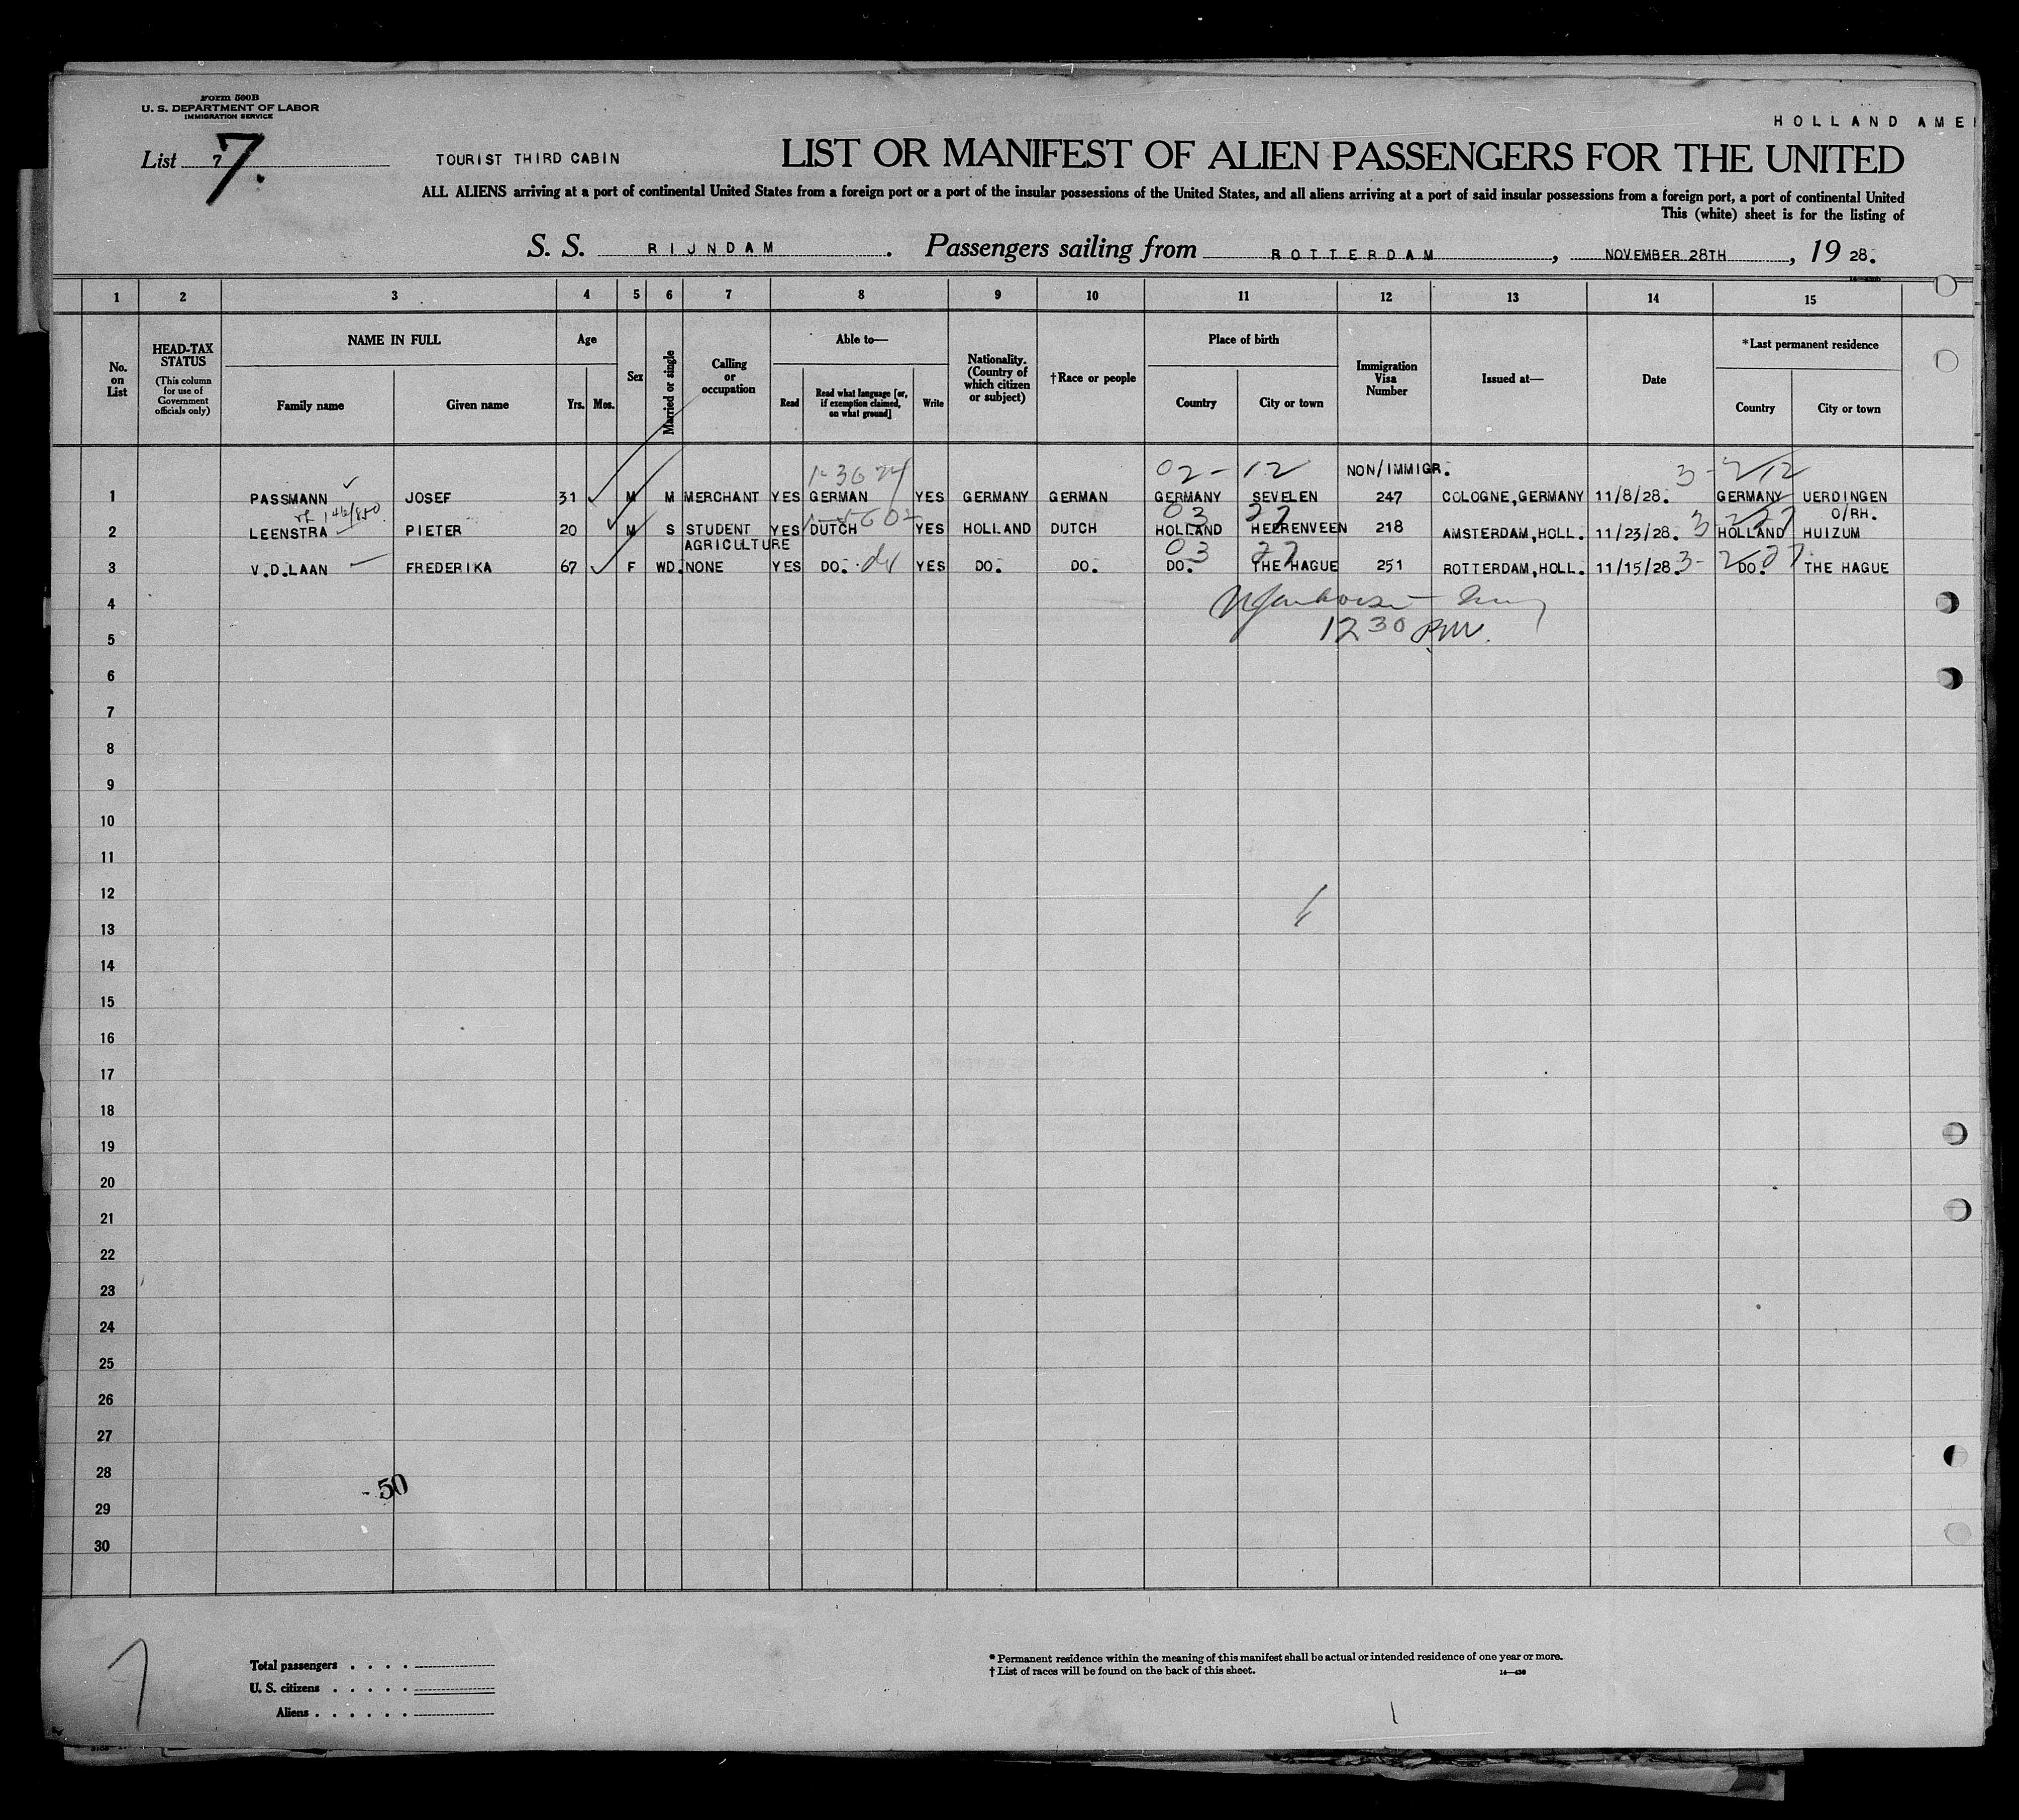 Form 500B
U. S. DEPARTMENT OF LABOR
IMMIGRATION SERVICE
HOLLAND AME
List 7 7.
TOURIST THIRD CABIN
LIST OR MANIFEST OF ALIEN PASSENGERS FOR THE UNITED
ALL ALIENS arriving at a port of continental United States from a foreign port or a port of the insular possessions of the United States, and all aliens arriving at a port of said insular possessions from a foreign port, a port of continental United
This (white) sheet is for the listing of
S. S. RIJNDAM. Passengers sailing from ROTTERDAM, NOVEMBER 28TH, 1928.
1 2 3 4 5 6 7 8 9 10 11 12 13 14 15
No. on List
HEAD-TAX STATUS (This column for use of Government officials only)
NAME IN FULL
Family name Given name
Age
Yrs. Mos.
Sex
Married or single
Calling or occupation
Able to—
Read Read what language [or, if exemption claimed, on what ground] Write
Nationality. (Country of which citizen or subject)
†Race or people
Place of birth
Country City or town
Immigration Visa Number
Issued at—
Date
*Last permanent residence
Country City or town
02-12 NON/IMMIGR. 3-212
1 PASSMANN JOSEF 31 M M MERCHANT YES GERMAN YES GERMANY GERMAN GERMANY SEVELEN 247 COLOGNE,GERMANY 11/8/28. GERMANY UERDINGEN
146/850 03 27 O/RH.
2 LEENSTRA PIETER 20 M S STUDENT YES DUTCH YES HOLLAND DUTCH HOLLAND HEERENVEEN 218 AMSTERDAM,HOLL. 11/23/28. 3 HOLLAND HUIZUM
AGRICULTURE 03 27
3 V.D.LAAN FREDERIKA 67 F WD. NONE YES DO. YES DO. DO. DO. THE HAGUE 251 ROTTERDAM,HOLL. 11/15/28. 3- DO. THE HAGUE
4
12 30 PM.
5
6
7
8
9
10
11
12
13
14
15
16
17
18
19
20
21
22
23
24
25
26
27
28
- 50
29
30
7
Total passengers . . . .
U. S. citizens . . . . .
Aliens . . . . . .
* Permanent residence within the meaning of this manifest shall be actual or intended residence of one year or more.
† List of races will be found on the back of this sheet.
14—430